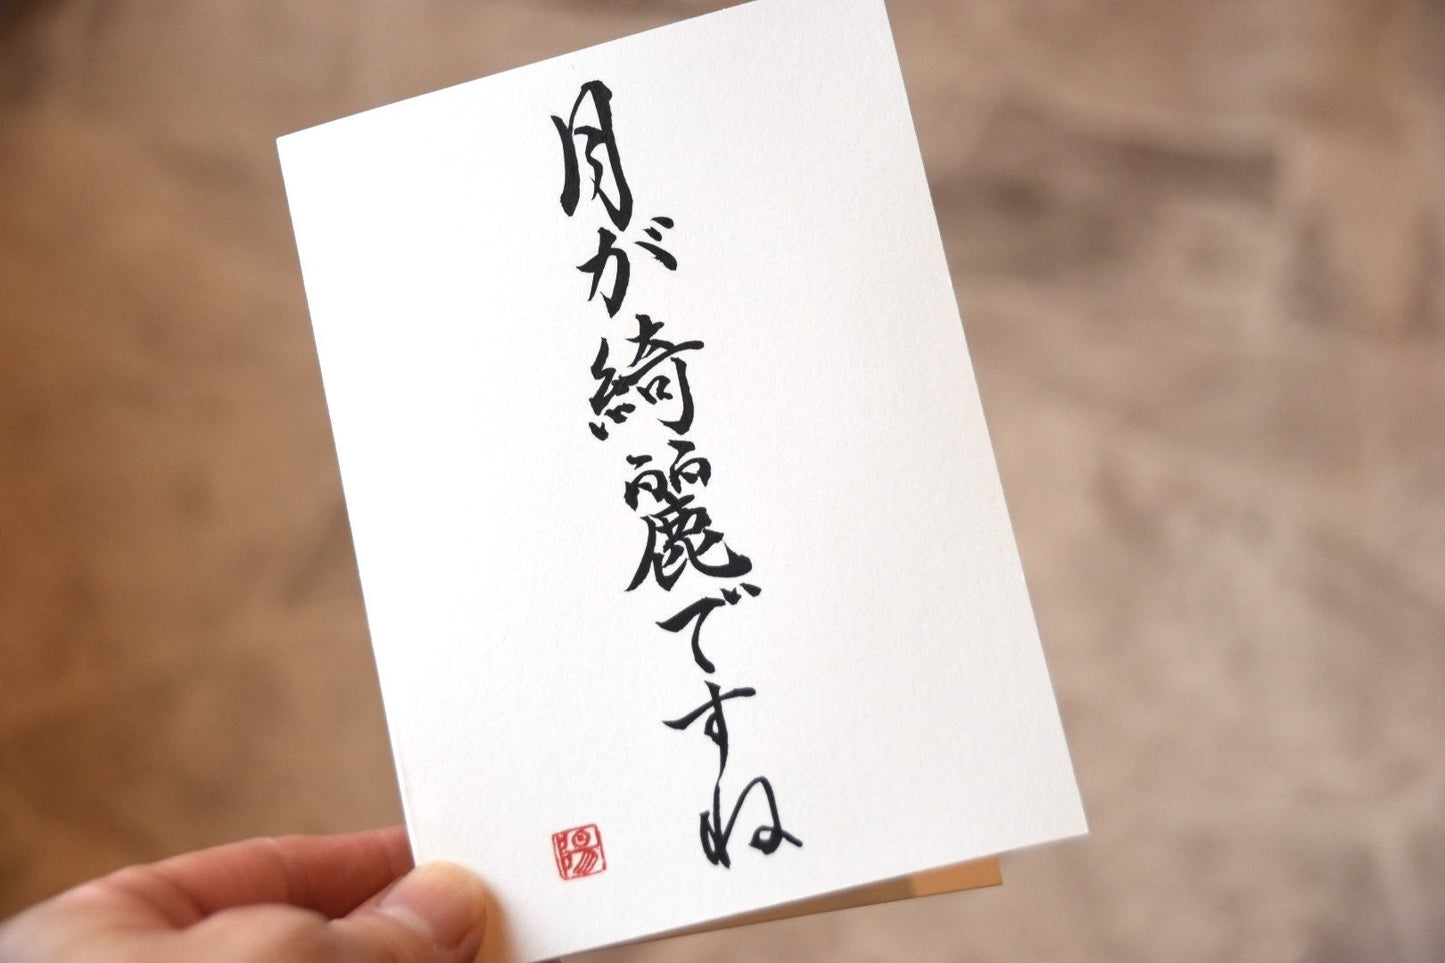 月が綺麗ですね
陽